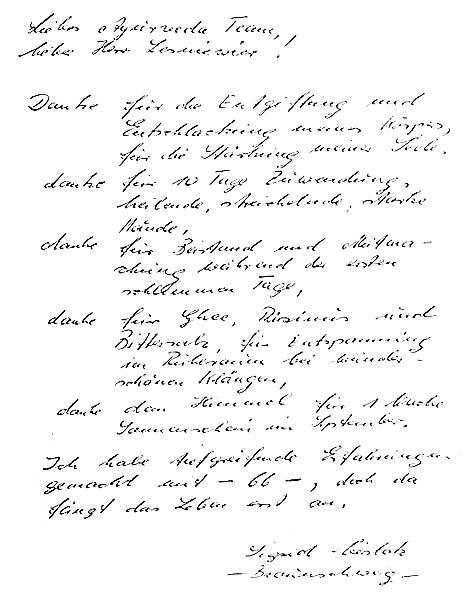 Liebes Ayurveda Team,
lieber Herr !
Danke für die Entgiftung und
Entschlackung meines Körpers,
für die Stärkung meiner Seele.
danke für 10 Tage Zuwendung,
heilende, streichelnde, starke
Hände,
danke für Beistand und Aufmun-
 während der ersten
schlimmen Tage,
danke für Ghee, Rizinus und
Bittersalz, für Entspannung
im Ruheraum bei wunder-
schönen Klängen,
danke dem Himmel für 1 Woche
Sonnenschein im September.
Ich habe tiefgreifende Erfahrungen
gemacht mit - 66 -, doch da
fängt das Leben erst an.
Sigrid
- Braunschweig -